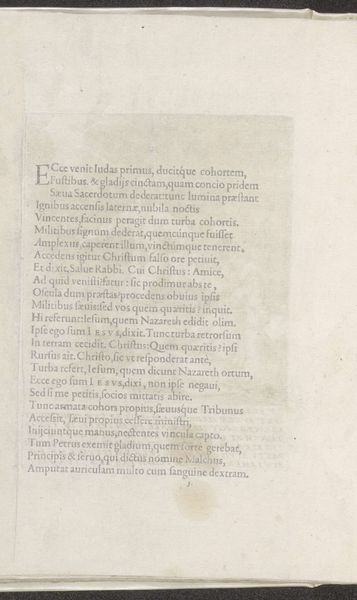 ECce venit Iudas primus, ducitque cohortem,
Fustibus, & gladijs cinctam, quam concio pridem
Sæua Sacerdotum dederat: tunc lumina præstant
Ignibus accensis laternæ, nubila noctis
Vincentes, facinus peragit dum turba cohortis.
Militibus signum dederat, quemcunque fuisset
Amplexus, caperent illum, vinctumque tenerent.
Accedens igitur Christum falso ore petiuit,
Et dixit, Salue Rabbi. Cui Christus: Amice,
Ad quid venisti? fatur: sic prodimur abs te,
Oscula dum præstas? procedens obuius ipsis
Militibus sæuis: sed vos quem quæritis? inquit.
Hi referunt: Iesum, quem Nazareth edidit olim.
Ipse ego sum IESVS, dixit. Tunc turba retrorsum
In terram cecidit. Christus: Quem quæritis? ipsi
Rursus ait. Christo, sic vt responderat ante,
Turba refert, Iesum, quem dicunt Nazareth ortum,
Ecce ego sum IESVS, dixi, non ipse negaui,
Sed si me petitis, socios mittatis abire.
Tunc armata cohors propius, sæuusque Tribunus
Accessit, sæui propius cessere ministri,
Inijciuntque manus, nectentes vincula capto.
Tum Petrus exemit gladium, quem forte gerebat,
Principis & seruo, qui dictus nomine Malchus,
Amputat auriculam multo cum sanguine dextram.